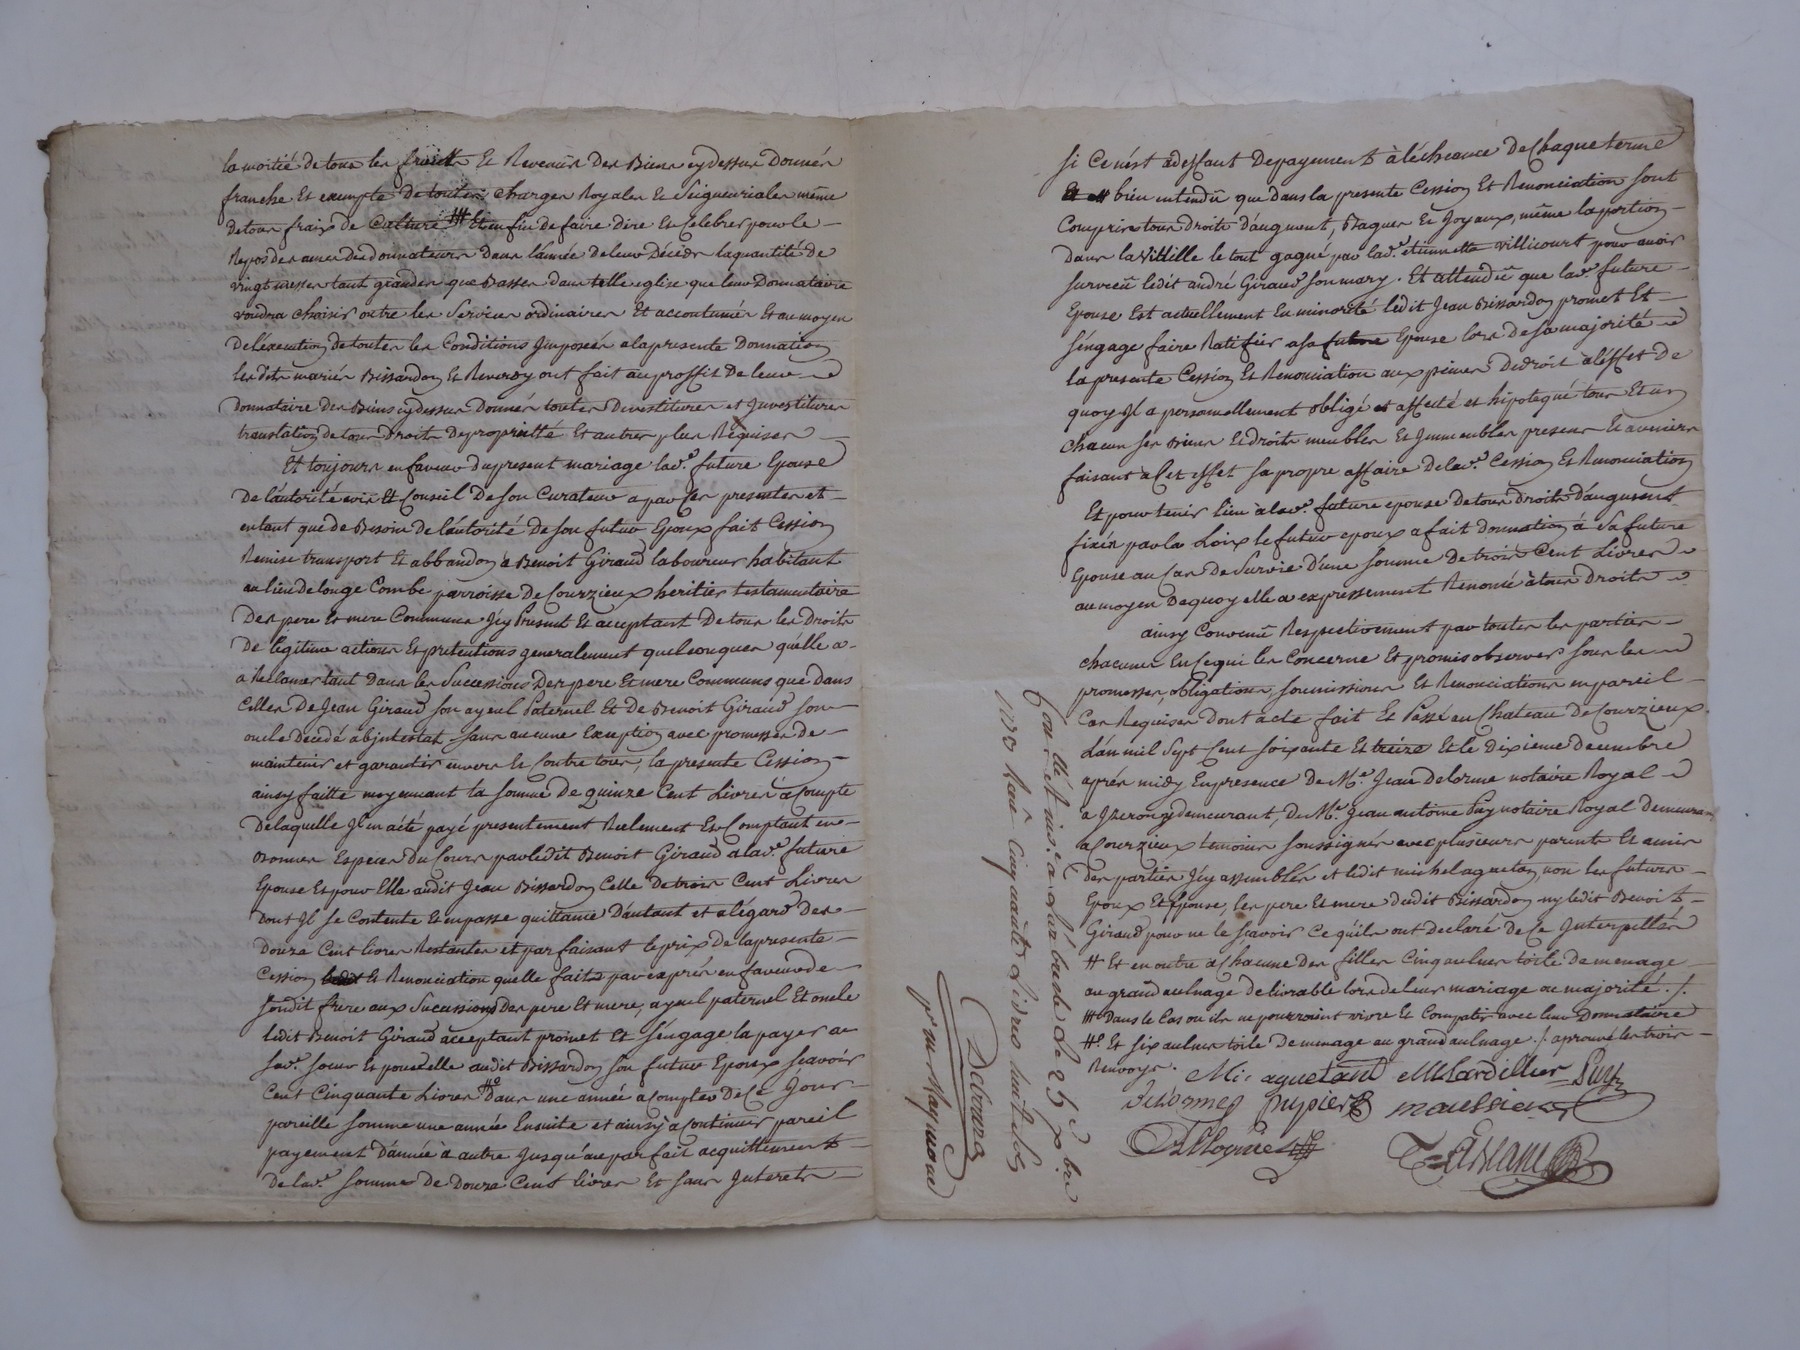 la moitié de tous les fruits Et Revenus des Biens cy dessus Donnés
franche Et exempte De toutes charges Royales Et Seigneuriales même
de tous fraix de Culture Et enfin de faire dire Et Celebrer pour le
Repos des ames Des donnateurs dans l'année de leur Décéds la quantité de
vingt messes tant grandes que Basses dans telle eglise que leur Donnataire
voudra choisir outre les Services ordinaires Et accoutumés Et au moyen
De l'éxecution de toutes les Conditions Jmposées a la presente Donnation
les dits mariés Bissardon Et Reverdy ont fait au proffit De leur
Donnataire des Biens cy dessus Donnés toutes Devestitures et Jnvestitures
translation de tous droits De proprietté Et autres plus Requises
Et toujours en faveur du present mariage lad.e future Epouse
De l'autorité avis Et Conseil De son Curateur a par Ces presentes et
entant que de Besoin De l'autorité De son futur Epoux fait Cession
Remise transport Et abbandon à Benoit Giraud laboureur habitant
au lieu De longe Combe parroisse De Courzieux heritier testamentaire
Des pere Et mere Communs Jcy Present Et acceptant De tous les Droits
De legitime actions Et pretentions generalement quelconques qu'elle a
à Reclamer tant Dans les Successions Des pere Et mere Communs que dans
Celles De Jean Giraud son ayeul Paternel Et De Benoit Giraud son
oncle decedé abjntestat, sans aucune Exception avec promesses de
maintenir et garantir envers Et Contre tous, la presente Cession
ainsy faitte moyennant la somme De quinze Cent Livres à Compte
De laquelle Jl en a été payé presentement Réelement Et Comptant en
Bonnes Especes Du Cours par ledit Benoit Giraud a lad.e future
Epouse Et pour Elle audit Jean Bissardon Celle De trois Cent Livres
Dont Jl se Contente Et en passe quittance D'autant et a l'égard Des
Douze Cent livres Restantes et parfaisant le prix De la presente
Cession Et Renonciation quelle faite par exprés en faveur de
sondit frere aux Successions Des pere Et mere, ayeul paternel Et oncle
ledit Benoit Giraud acceptant promet Et s'engage la payer a
sad.e soeur Et pour elle audit Bissardon son futur Epoux scavoir
Cent Cinquante Livres dans une année a Compter De Ce Jour
pareille somme une année Ensuite et ainsy à Continuer pareil
payement D'année à autre Jusqu'au parfait acquittement
De lad.e somme De Douze Cent livres Et sans Jnterets
si Ce n'ést a deffaut De payement à l'écheance de Chaque terme
bien entendu que dans la presente Cession Et Renonciation sont
Compris tous droits d'augment, Bagues Et Joyaux, même la portion
Dans la Vittille le tout gagné par lad.e étiennette villicourt pour avoir
survécu ledit andré Giraud son mary. Et attendû que lad.e future
Epouse Est actuellement En minorité ledit Jean Bissardon promet Et
s'éngage faire Ratifier a sa future Epouse lors De sa majorité
la presente Cession Et Renonciation aux peines De droit à l'éffet de
quoy Jl a personnellement obligé et affecté et hipotequé tous Et un
chacun ses Biens Et droits meubles Et Jmmeubles presens Et avenirs
faisant à Cet effet sa propre affaire De lad.e Cession Et Renonciation
Et pour tenir lieu à lad.e future epouse De tous droits d'augment
fixés par la Loix le futur epoux a fait donnation à Sa future
Epouse au Cas De Survie D'une somme De trois Cent Livres
au moyen De quoy elle a expressement Renoncé à tous Droits
ainsy Convenû Respectivement par toutes les parties
chacune En Ce qui les Concerne Et promis observer sous les
promesses, obligations, soumissions Et Renonciations en pareil
Cas Requises Dont acte fait Et Passé au Chateau De Courzieux
L'an mil Sept Cent soixante Et treize Et le dixieme Decembre
aprés midy En presence De M.e Jean Delorme notaire Royal
a Jzeron y demeurant, De M.e Jean antoine Puy notaire Royal Demeurant
a Courzieux temoins soussignés avec plusieurs parents Et amis
Des parties Jcy assemblés et ledit michel aguetan, non les futurs
Epoux Et Epouse, les pere Et mere Dudit Bissardon ny ledit Benoit
Giraud pour ne le scavoir Ce qu'ils ont Declaré de Ce Jnterpellés
# Et en outre à Chacune Des filles Cinq aulnes toile De menage
au grand aulnage delivrable lors de leur mariage ou majorité ./.
Dans le Cas ou ils ne pourroient vivre Et Compatir avec leur Donnataire
Et six aulnes toile De menage au grand aulnage ./. aprouvé les trois
Renvoys.
Mi. aguetant Puy
Delorme pupier
Cont.llé et ins.é a Larbresle le 25 Xbre
1773 Reçu Cinquante Livres huit sols